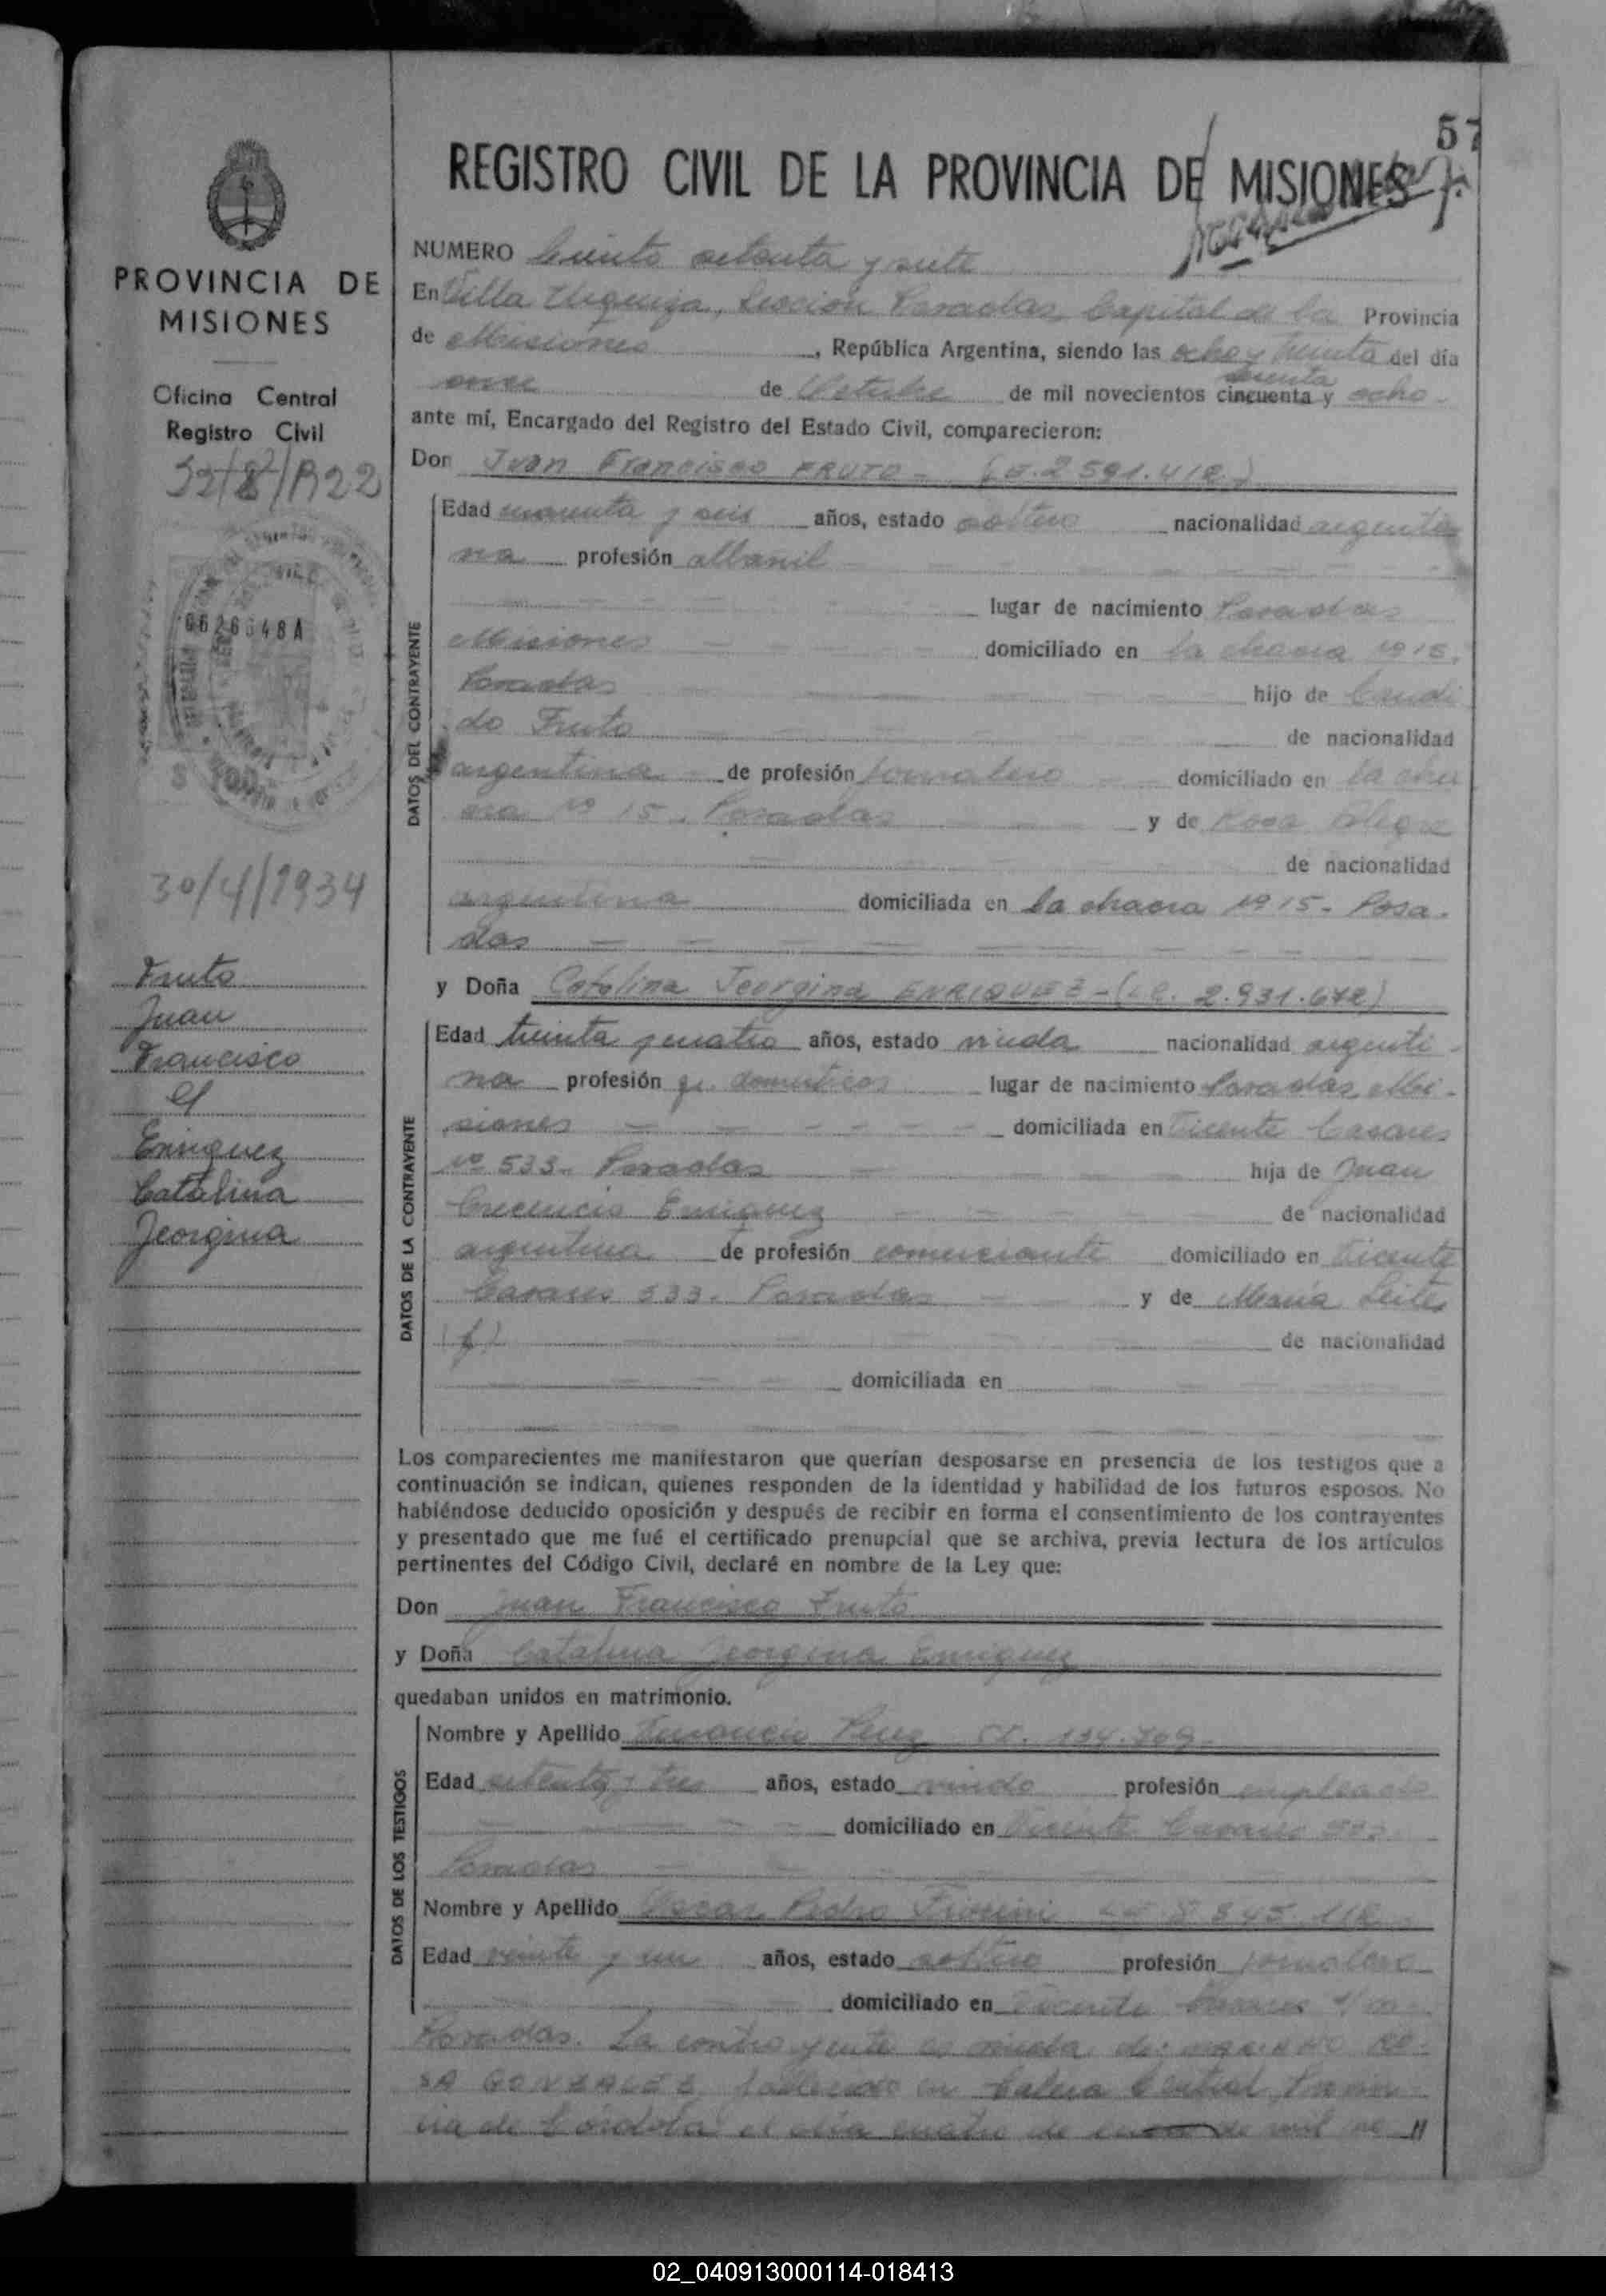 57
REGISTRO CIVIL DE LA PROVINCIA DE MISIONES
PROVINCIA DE
MISIONES
Oficina Central
Registro Civil
30/4/1934
Fruto
Juan
Francisco
Enriquez
Catalina
Jeorgina
NUMERO Ciento setenta y siete
En Villa Urquiza, Sección Posadas, Capital de la Provincia
de Misiones, República Argentina, siendo las ocho y treinta del día
once de Octubre de mil novecientos cincuenta y ocho
ante mí, Encargado del Registro del Estado Civil, comparecieron:
Don Juan Francisco FRUTO - 2.591.412)
DATOS DEL CONTRAYENTE
Edad y seis años, estado soltero nacionalidad argenti
na profesión albanil
lugar de nacimiento Posadas
Misiones domiciliado en la chacra Nº 15.
Posadas hijo de Candi
do Fruto de nacionalidad
argentina de profesión jornalero domiciliado en la cha
cra Nº 15. Posadas y de Rosa Alegre
de nacionalidad
argentina domiciliada en la chacra Nº 15. Posa-
das
y Doña Catalina Jeorgina ENRIQUEZ - 2.931.672)
DATOS DE LA CONTRAYENTE
Edad treinta y cuatro años, estado viuda nacionalidad argenti-
na profesión q. domésticos lugar de nacimiento Posadas, Mi-
siones domiciliada en Vicente Casares
Nº 533. Posadas hija de Juan
Crecencio Enriquez de nacionalidad
argentina de profesión comerciante domiciliado en Vicente
Casares 533. Posadas y de María Leites
(f) de nacionalidad
domiciliada en
Los comparecientes me manifestaron que querían desposarse en presencia de los testigos que a
continuación se indican, quienes responden de la identidad y habilidad de los futuros esposos. No
habiéndose deducido oposición y después de recibir en forma el consentimiento de los contrayentes
y presentado que me fué el certificado prenupcial que se archiva, previa lectura de los artículos
pertinentes del Código Civil, declaré en nombre de la Ley que:
Don Juan Francisco Fruto
y Doña Catalina Jeorgina Enriquez
quedaban unidos en matrimonio.
DATOS DE LOS TESTIGOS
Nombre y Apellido Perez
Edad setenta y tres años, estado viudo profesión empleado
domiciliado en Vicente Casares 533
Posadas
Nombre y Apellido Oscar Pedro
Edad veinte y un años, estado soltero profesión jornalero
domiciliado en Vicente Casares
Posadas. La contrayente es viuda de:
GONZALEZ, fallecido en Calera Central, Provin-
cia de Córdoba el día cuatro de enero de mil no //
02_040913000114-018413